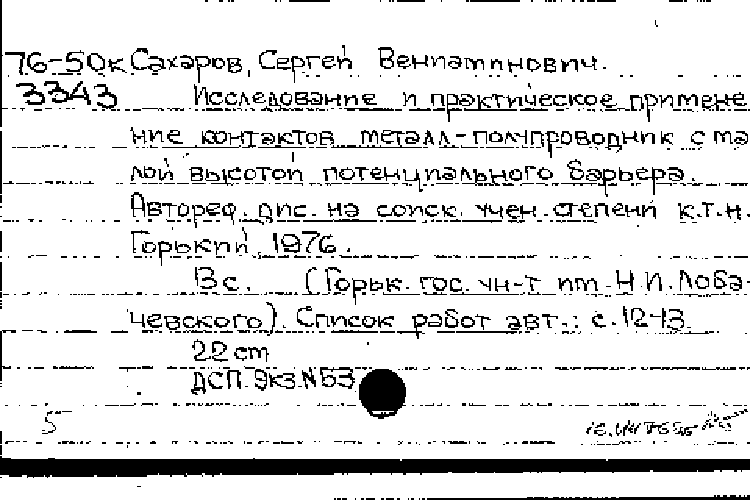 76-50к Сахаров, Сергей Вениаминович.
3343 Исследование и практическое примене
ние контактов металл-полупроводник с ма
лой высотой потенциального барьера.
Автореф. дис. на соиск. учен. степени к.т.н.
Горький, 1976.
13с. (Горьк. гос. ун-т им. Н.И. Лоба-
чевского). Список работ авт.: с. 12-13.
22 cm
ДСП. Экз. №53
5